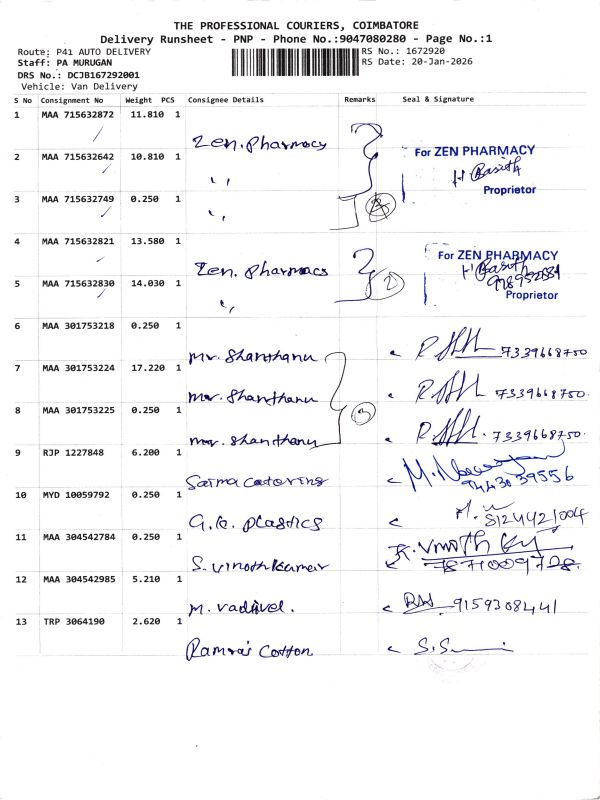 THE PROFESSIONAL COURIERS, COIMBATORE
Delivery Runsheet - PNP - Phone No.:9047080280 - Page No.:1
Route: P41 AUTO DELIVERY
RS No.: 1672920
Staff: PA MURUGAN
RS Date: 20-Jan-2026
DRS No.: DCJB167292001
Vehicle: Van Delivery
S No Consignment No Weight PCS Consignee Details Remarks Seal & Signature
1 MAA 715632872 11.810 1
Zen. Pharmacy
For ZEN PHARMACY
2 MAA 715632642 10.810 1
〃
Proprietor
3 MAA 715632749 0.250 1
〃
4 MAA 715632821 13.580 1
Zen. Pharmacy
For ZEN PHARMACY
2
5 MAA 715632830 14.030 1
〃
Proprietor
6 MAA 301753218 0.250 1
Mr. Shanthanu 7339668750
7 MAA 301753224 17.220 1
Mr. Shanthanu 7339668750.
8 MAA 301753225 0.250 1
3
Mr. Shanthanu 7339668750.
9 RJP 1227848 6.200 1
Saima Catering 9443039556
10 MYD 10059792 0.250 1
G.K. Plastics 8124421004
11 MAA 304542784 0.250 1
S. Vinothkumar 7871009728.
12 MAA 304542985 5.210 1
M. Vadivel. 9159308441
13 TRP 3064190 2.620 1
Ramraj Cotton